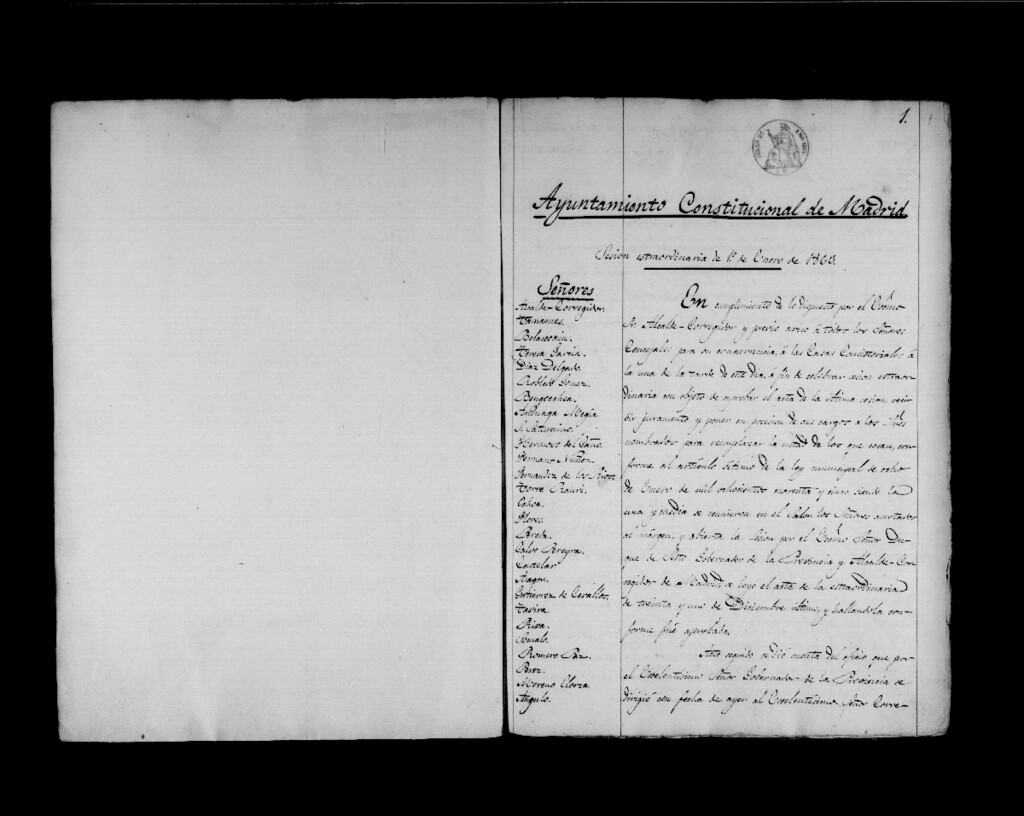 1.
Ayuntamiento Constitucional de Madrid
Sesion estraordinaria de 1º de Enero de 1863.
Señores
Alcalde-Corregidor.
Tamames.
Belascoain.
Heresa Garcia.
Diaz Delgado.
Robledo Gomez.
Bengoechea.
Azituaga Megia
S. Saturnino.
Hermoso del Caño.
Fernan Nuñez.
Fernandez de los Rios.
Torre Rauri.
Ochoa.
Flores.
Calvo Pereyra.
Castelar.
Aragon.
Gutierrez de Cevallos.
Tavira.
Riva.
Somalo.
Romero Paz.
Perez.
Moreno Elorza.
Angulo.
En cumplimiento de lo dispuesto por el Escmo
Sr. Alcalde-Corregidor y previo aviso á todos los Señores
Concejales para su concurrencia, á las Casas Consistoriales á
la una de la tarde de este dia, á fin de celebrar sesion estraor-
dinaria con objeto de aprobar el acta de la última sesion, reci-
bir juramento y poner en posesion de sus cargos a los Sres
nombrados para reemplazar la mitad de los que cesan, con-
forme al artículo sétimo de la ley municipal de ocho
de Enero de mil ochocientos cuarenta y cinco, siendo la
una y media se reunieron en el Salon los Señores anotados
al margen, y abierta la sesion por el Escmo Señor Du-
que de Sesto Gobernador de la Provincia y Alcalde-Cor-
regidor de Madrid se leyó el acta de la estraordinaria
de treinta y uno de Diciembre último, y hallandola con-
forme fué aprobada.
Acto seguido se dió cuenta del oficio que por
el Escelentísimo Señor Gobernador de la Provincia se
dirigió con fecha de ayer al Escelentísimo Señor Corre-